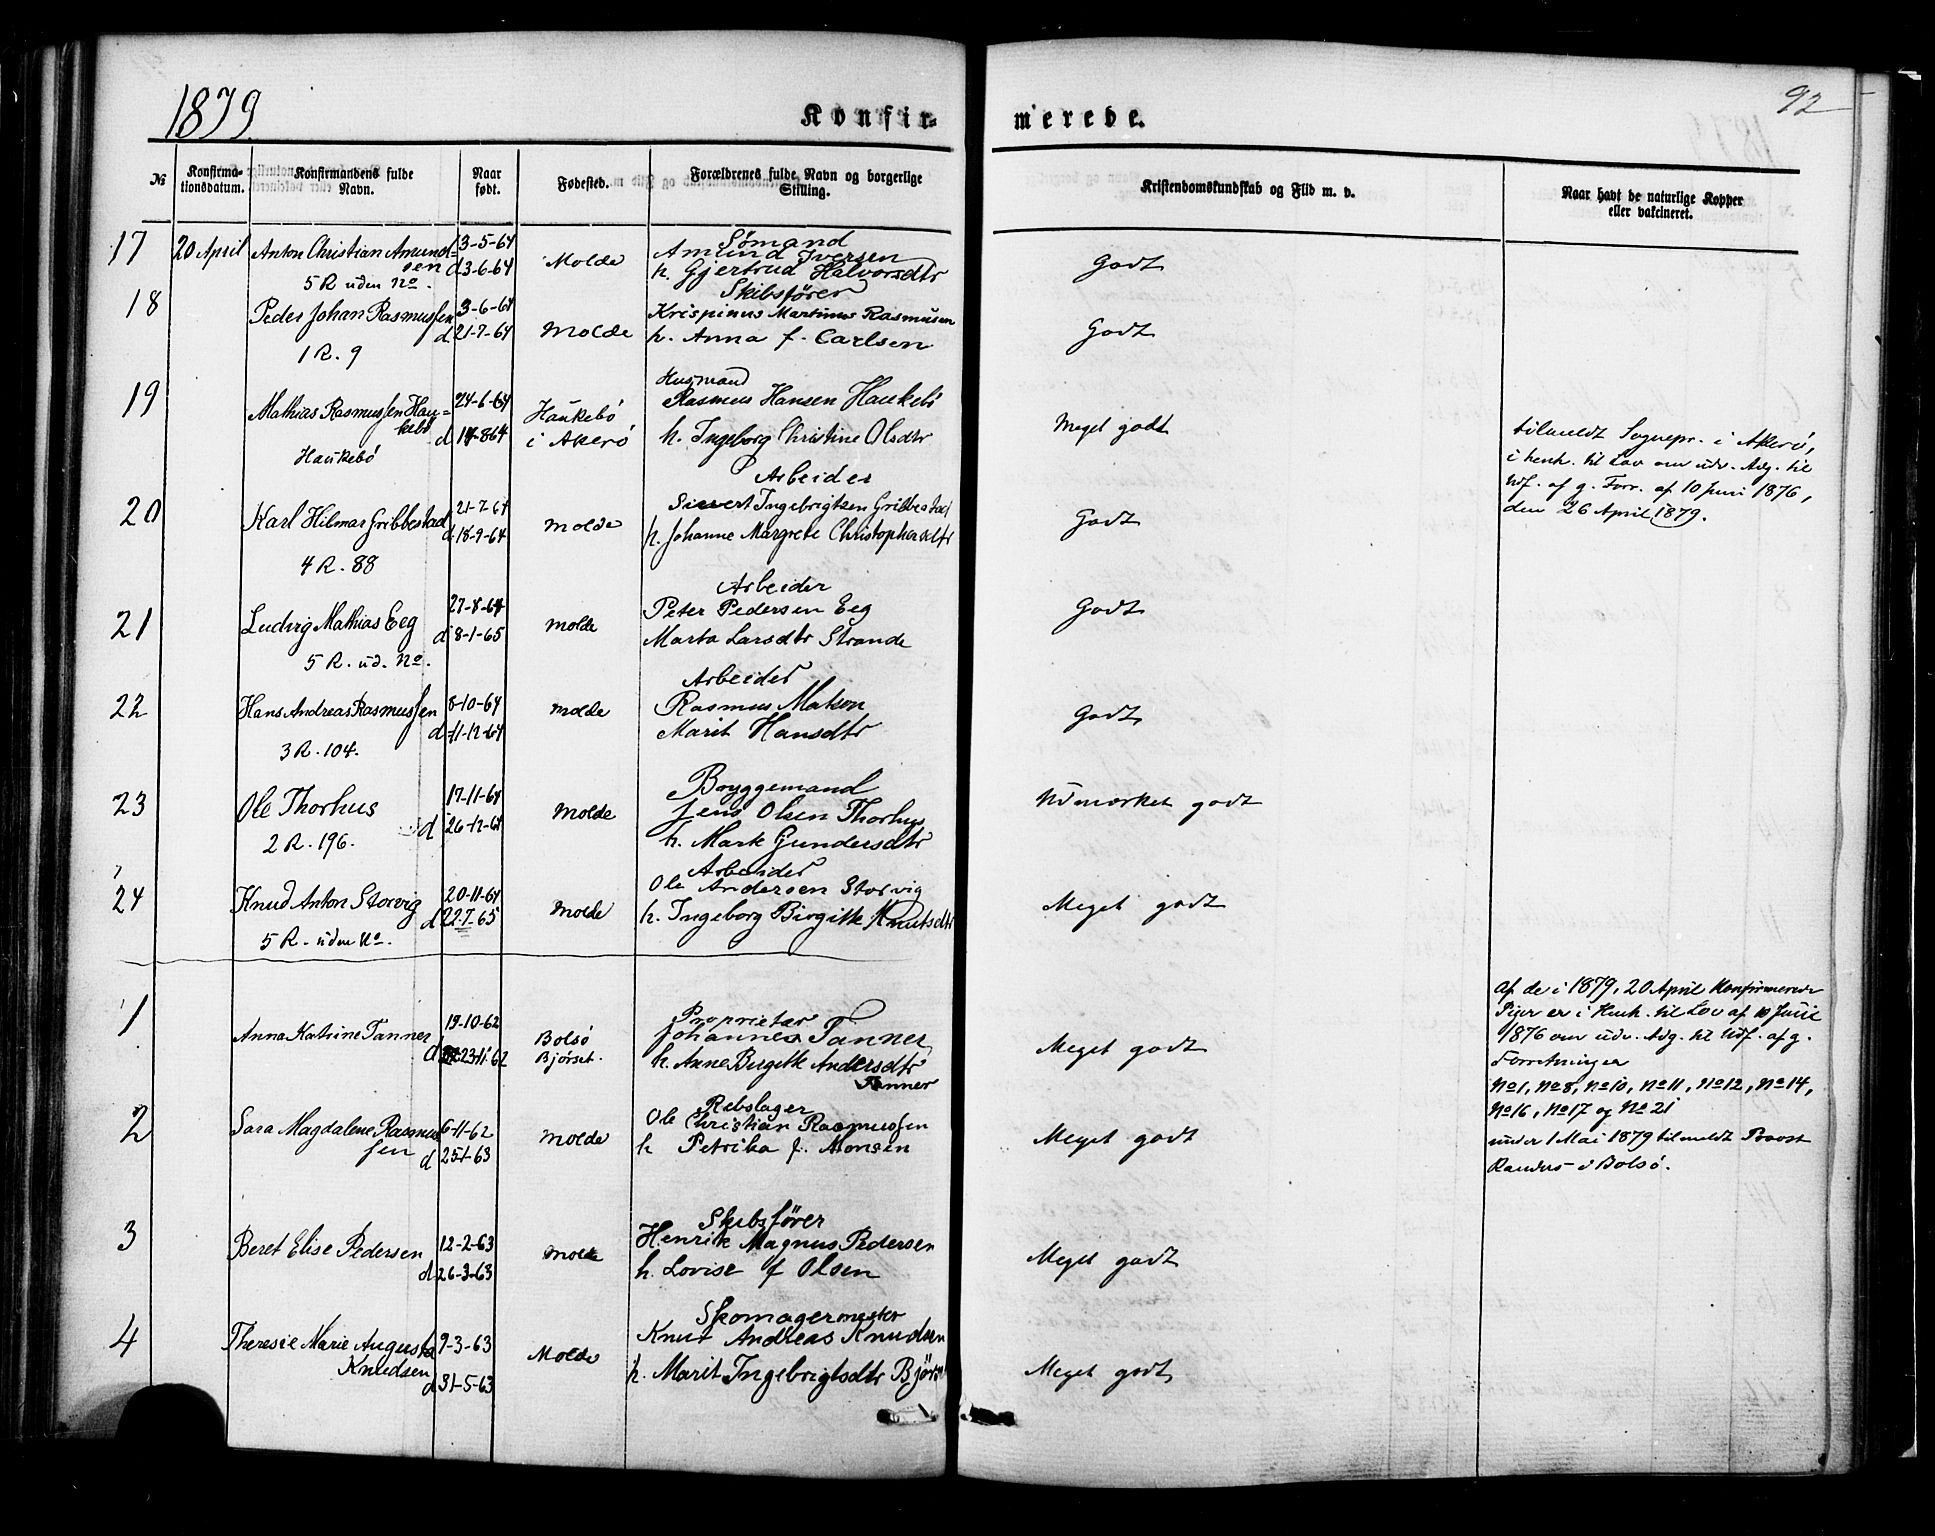 1879
92
Konfir-
merede.
№
Konfirma-
tionsdatum.
Konfirmandens fulde
Navn.
Naar
født.
Fødested.
Forældrenes fulde Navn og borgerlige
Stilling.
Kristendomskundskab og Flid m. v.
Naar havt de naturlige Kopper
eller vakcineret.
17 20 April Anton Christian Amund-
sen
5 R uden No.
3-5-64
d 3-6-64
Molde
Sømand
Amund Iversen
h. Gjertrud Halvorsdtr
Godt
18 Peder Johan Rasmussen
1 R. 9
3-6-64
d 21-7-64
Molde
Skibsfører
Krispinus Martinus Rasmussen
h. Anna f. Carlsen
Godt
19 Mathias Rasmussen Hau-
kebö
Haukebö
24-6-64
d 14-8 64
Haukebö
i Akerö
Husmand
Rasmus Hansen Haukebö
h. Ingeborg Christine Olsdtr
Meget godt
tilmeldt Sognepr. i Akerö,
i henh. til Lov om udv. Adg. til
Udf. af g. Forr. af 10 Juni 1876,
den 26 April 1879.
20 Karl Hilmar Gribbestad
4 R. 88
21-7-64
d 18-9-64
Molde
Arbeider
Sivert Ingebrigtsen Gribbestad
h. Johanne Margrete Christophersdtr
Godt
21 Ludvig Mathias Eeg
5 R. ud. No.
27-8-64
d 8-1-65
Molde
Arbeider
Peter Pedersen Eeg
Marta Larsdtr Strande
Godt
22 Hans Andreas Rasmussen
3 R. 104.
8-10-64
d 11-12-64
Molde
Arbeider
Rasmus Matson
Marit Hansdtr
Godt
23 Ole Thorhus
2 R. 196.
17-11-64
d 26-12-64
Molde
Bryggemand
Jens Olsen Thorhus
h. Marte Gundersdtr
Udmærket godt
24 Knud Anton Storvig
5 R. uden No.
20-11-64
d 22.7.65
Molde
Arbeider
Ole Andersen Storvig
h. Ingeborg Birgitte Knutsdtr
Meget godt
1 Anna Katrine Tanner
19-10-62
d 23-11-62
Bolsö
Bjørset.
Proprietær
Johannes Tanner
h. Anne Birgitte Andersdtr
Tanner
Meget godt
af de i 1879, 20 April Konfirmerede
Piger er i Henh. til Lov af 10 Juni
1876 om udv. Adg. til Udf. af g.
Forretninger
No 1, No 8, No 10, No 11, No 12, No 14,
No 16, No 17 og No 21
under 1 Mai 1879 tilmeldt Provst
Randers i Bolsö.
2 Sara Magdalene Rasmus-
sen
6-11-62
d 25-1-63
Molde
Rebslager
Ole Christian Rasmussen
h Petrika f. Monsen
Meget godt
3 Beret Elise Pedersen
12-2-63
d 26-3-63
Molde
Skibsfører
Henrik Magnus Pedersen
h. Lovise f Olsen
Meget godt
4 Theresie Marie Augusta
Knudsen
9-3-63
d 31-5-63
Molde
Skomagermester
Knut Andreas Knudsen
h. Marit Ingebrigtsdtr
Meget godt